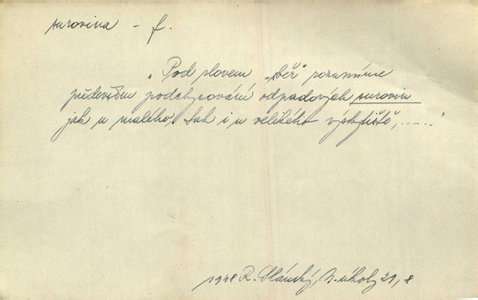 surovina - f.
„Pod slovem „sběr" rozumíme
především podchycování odpadových surovin
jak u malého, tak i u velikého výskytiště, .....
1948 R. Slánský, B. úkoly 21, 8